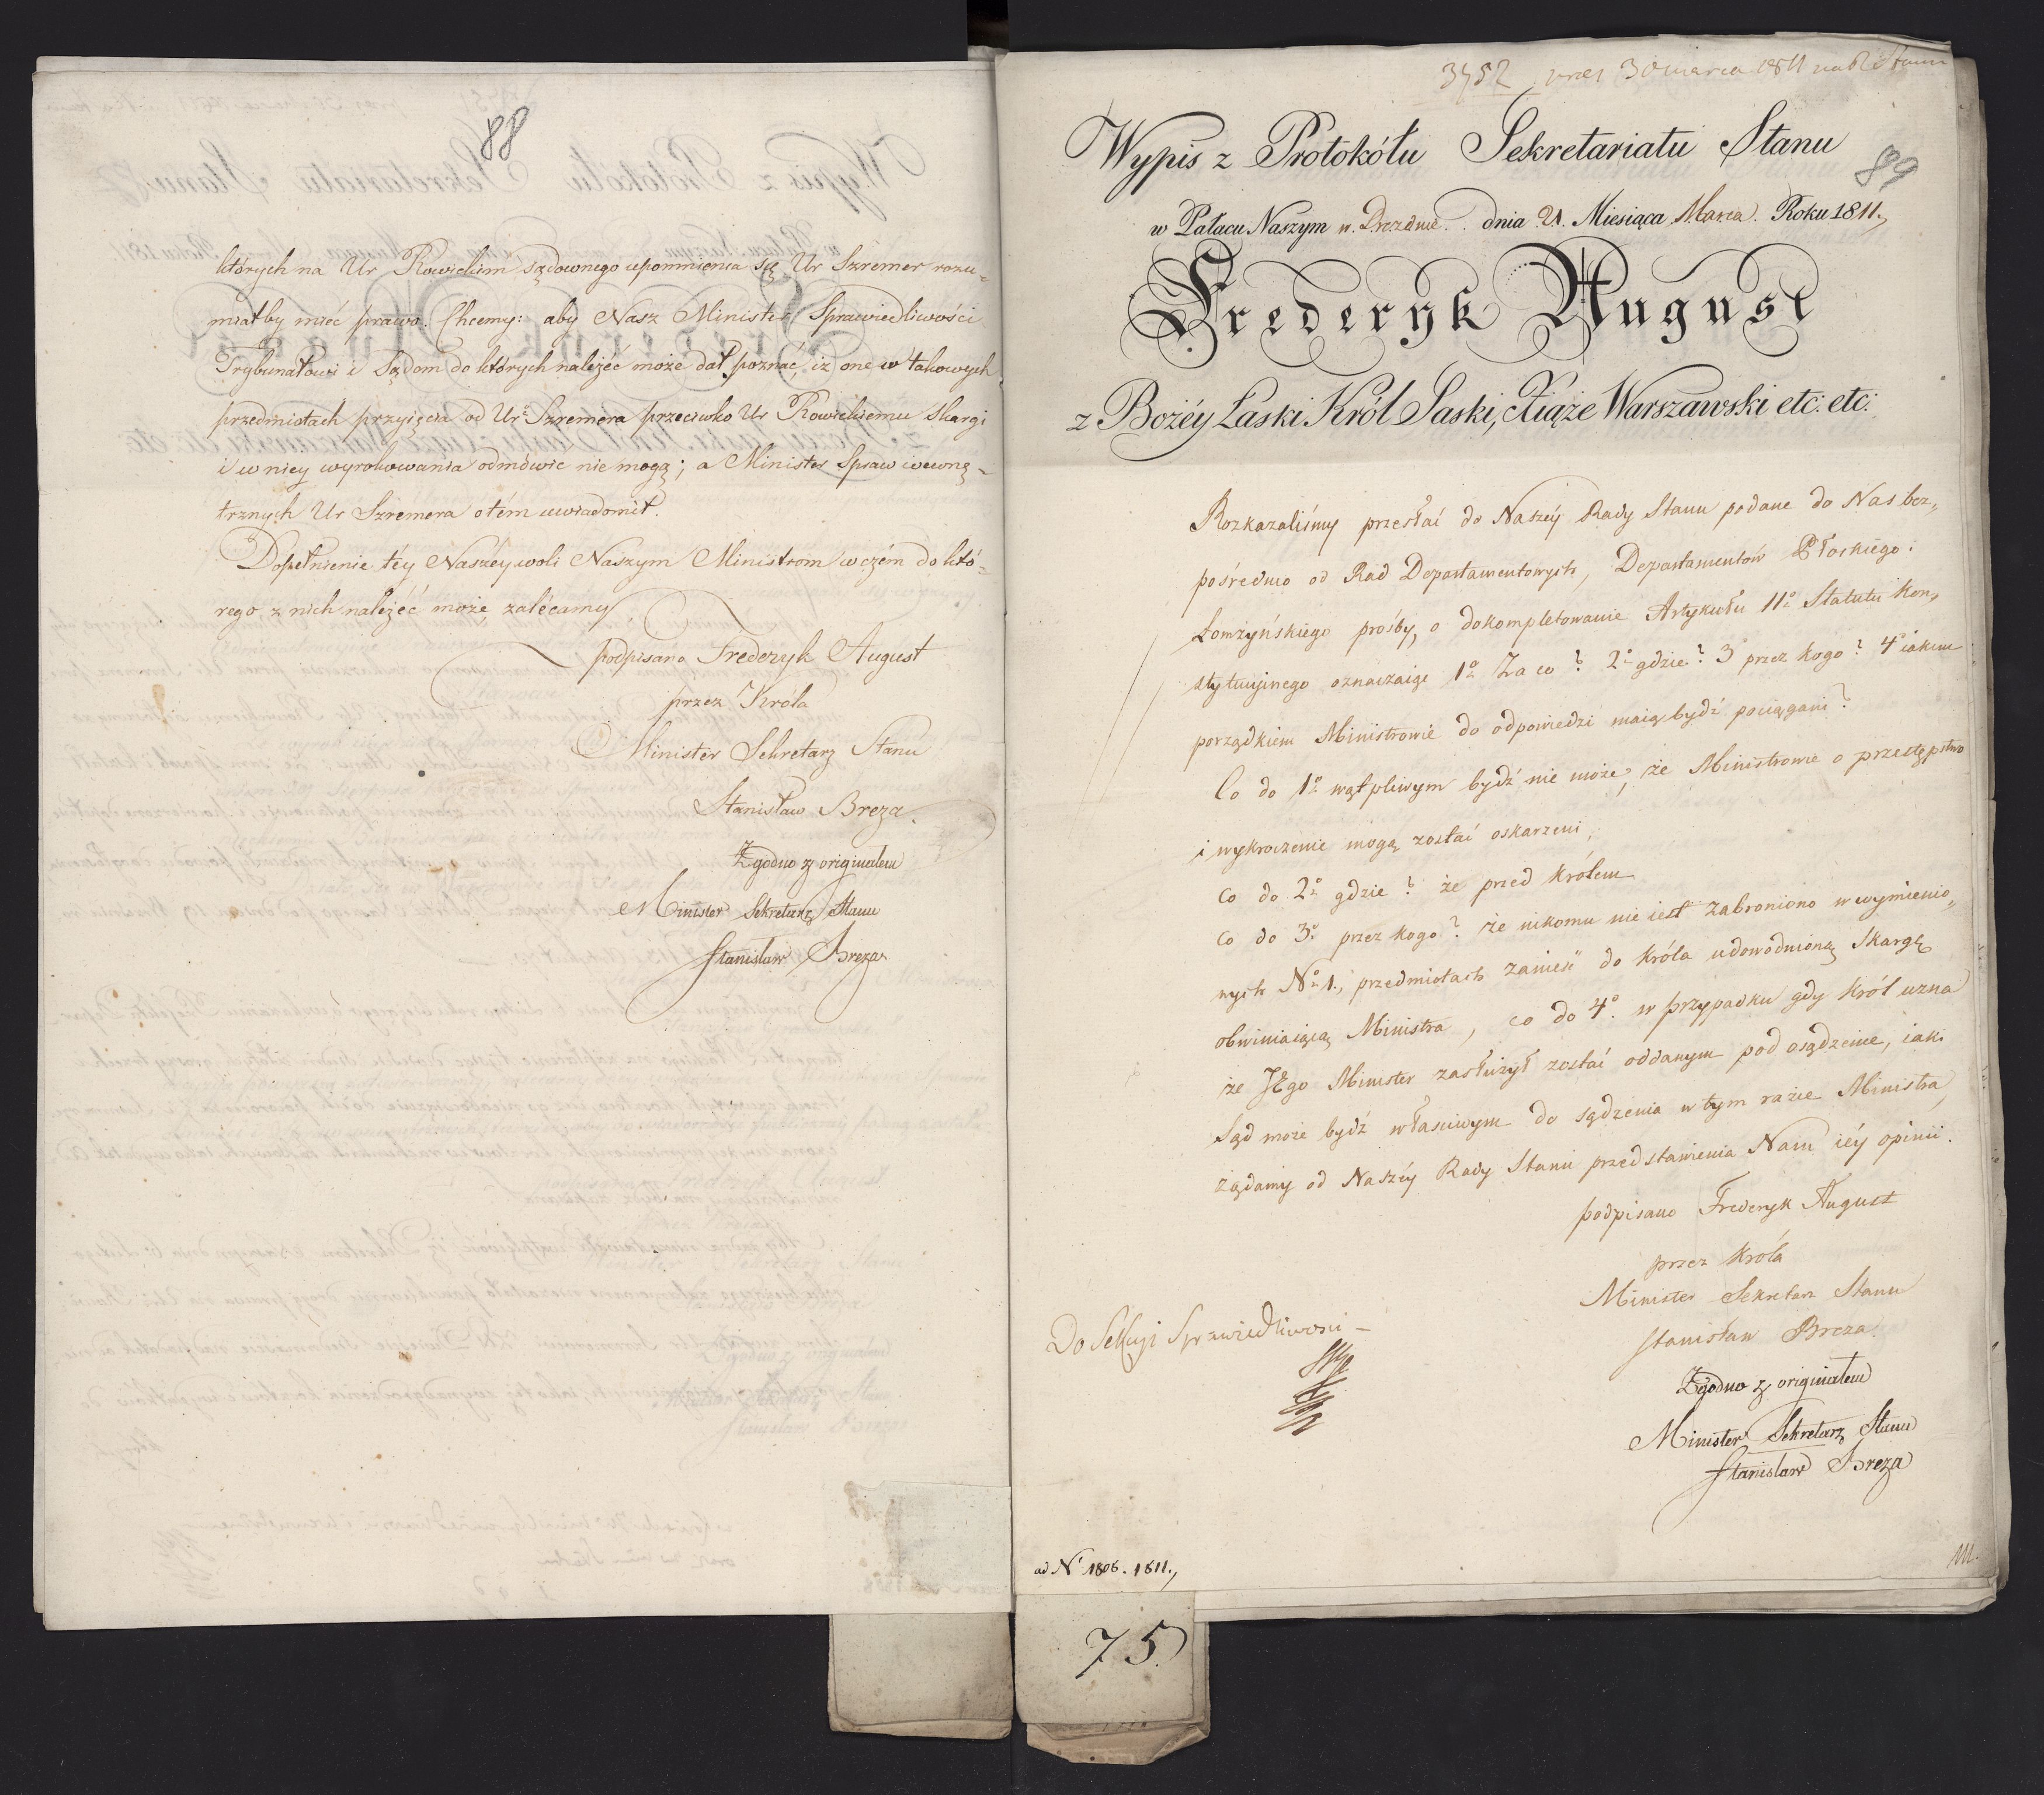 88
których na Ur Rowickim sądownego upomnienia się Ur Szremer rozu-
miałby mieć prawo. Chcemy: aby Nasz Minister Sprawiedliwości
Trybunałowi i Sądom do których należéć może dał poznać, iż one w takowych
przedmiotach przyięcia od Ur. Szremera przeciwko Ur Rowickiemu skargi
i w niey wyrokowania odmówić nie mogą; a Minister Spraw wewnę-
trznych Ur Szremera o tém uwiadomił.
Dopełnienie téy Naszéy woli Naszym Ministrom w czém do któ-
rego z nich należéć może, zalécamy.
podpisano Frederyk August
przez Króla
Minister Sekretarz Stanu
Stanisław Breza.
Zgodno z originałem
Minister Sekretarz Stanu
Stanisław Breza
3452 30 marca 1811
Wypis z Protokółu Sekretariatu Stanu
89
w Pałacu Naszym w Dreznie. dnia 21. Miesiąca Marca. Roku 1811,
Frederyk August
z Bożéy Łaski Król Saski, Xiąże Warszawski etc: etc:
Rozkazaliśmy przesłać do Naszéy Rady Stanu podane do Nas bez-
pośrednio od Rad Departamentowych, Departamentów Płockiego i
Łomżyńskiego prośby, o dokompletowanie Artykułu 11º Statutu Kon-
stytucyinego oznaczaiąc 1º Za co? 2º gdzie? 3º przez kogo? 4º iakim
porządkiem Ministrowie do odpowiedzi maią bydź pociągani?
Co do 1º wątpliwym bydź nie może, że Ministrowie o przestępstwo
i wykroczenie mogą zostać oskarzeni,
co do 2º gdzie? że przed Królem
co do 3º przez kogo? że nikomu nie iest zabroniono w wymienio-
nych Nº 1, przedmiotach zanieść do Króla udowodnioną skargę
obwiniaiącą Ministra, co do 4º w przypadku gdy Król uzna
że JEgo Minister zasłużył zostać oddanym pod osądzenie, iaki
Sąd może bydź właściwym do sądzenia w tym razie Ministra,
żądamy od Naszéy Rady Stanu przedstawienia Nam iéy opinii.
podpisano Frederyk August
przez Króla
Minister Sekretarz Stanu
Stanisław Breza.
Do Sekcyi Sprawiedliwości –
Zgodno z originałem
Minister Sekretarz Stanu
Stanisław Breza
ad Nº 1806. 1811.,
75.